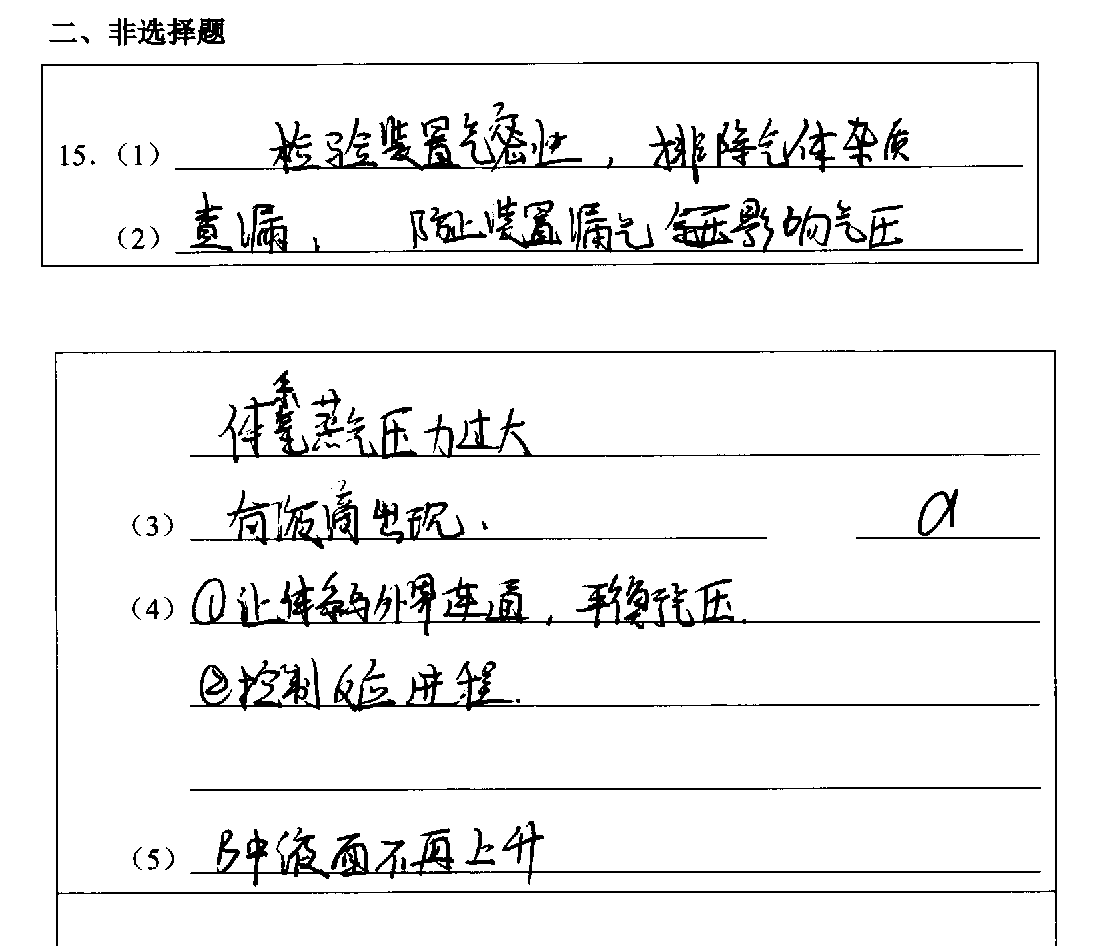 二、非选择题
15.（1） 检验装置气密性，排除气体杂质
（2） 查漏， 防止装置漏气 影响气压
体系蒸气压力过大
（3） 有液滴出现. a
（4） ①让体系与外界连通，平衡气压.
②控制反应进程.
（5） B中液面不再上升